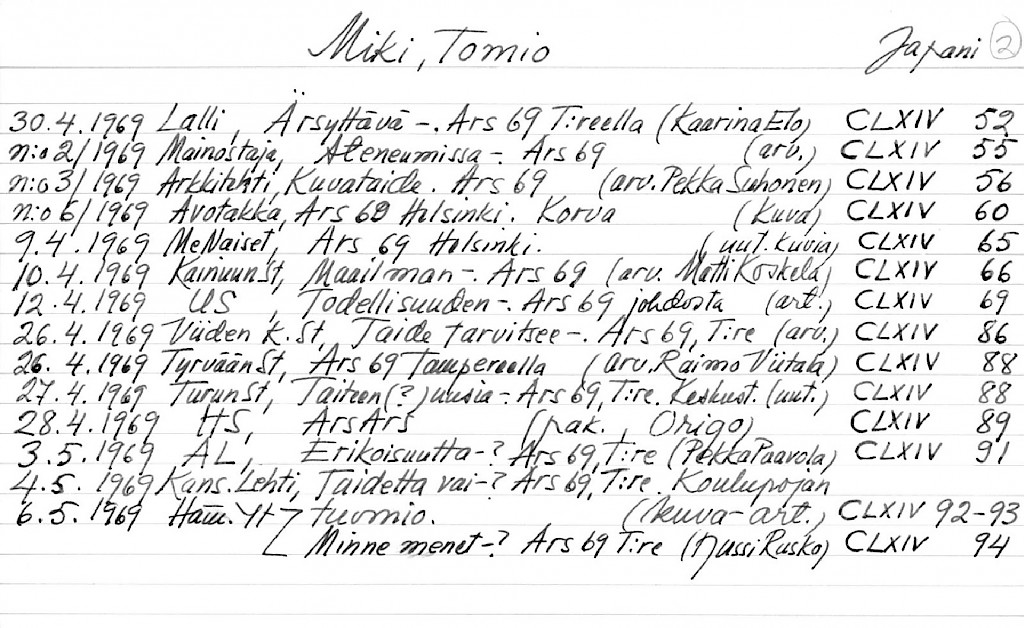 Miki, Tomio Japani 2
30.4.1969 Lalli, Ärsyttävä -. Ars 69 T:reella (Kaarina Elo) CLXIV 52
n:o 2/1969 Mainostaja, Ateneumissa -. Ars 69 (arv.) CLXIV 55
n:o 3/1969 Arkkitehti, Kuvataide. Ars 69 (arv. Pekka Suhonen) CLXIV 56
n:o 6/1969 Avotakka, Ars 69 Helsinki. Korva (Kuva) CLXIV 60
9.4.1969 MeNaiset, Ars 69 Helsinki. (uut. kuvia) CLXIV 65
10.4.1969 KainuunSt, Maailman -. Ars 69 (arv. Matti Koskela) CLXIV 66
12.4.1969 US, Todellisuuden -. Ars 69 johdosta (art.) CLXIV 69
26.4.1969 Viiden K.St, Taide tarvitsee -. Ars 69, T:re (arv.) CLXIV 86
26.4.1969 TyrväänSt, Ars 69 Tampereella (arv. Raimo Viitala) CLXIV 88
27.4.1969 TurunSt, Taiteen (?) uusia -. Ars 69, T:re. Keskust. (uut.) CLXIV 88
28.4.1969 HS, ArsArs (pak., Origo) CLXIV 89
3.5.1969 AL, Erikoisuutta -? Ars 69, T:re (Pekka Paavola) CLXIV 91
4.5.1969 Kans.Lehti, Taidetta vai -? Ars 69, T:re. Koulupojan
6.5.1969 Häm.Yht tuomio. (kuva-art.) CLXIV 92-93
Minne menet -? Ars 69 T:re (Jussi Rusko) CLXIV 94